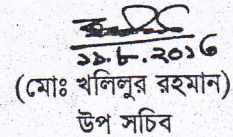 ১১.৮.২০১৬
(মোঃ খলিলুর রহমান)
উপ সচিব